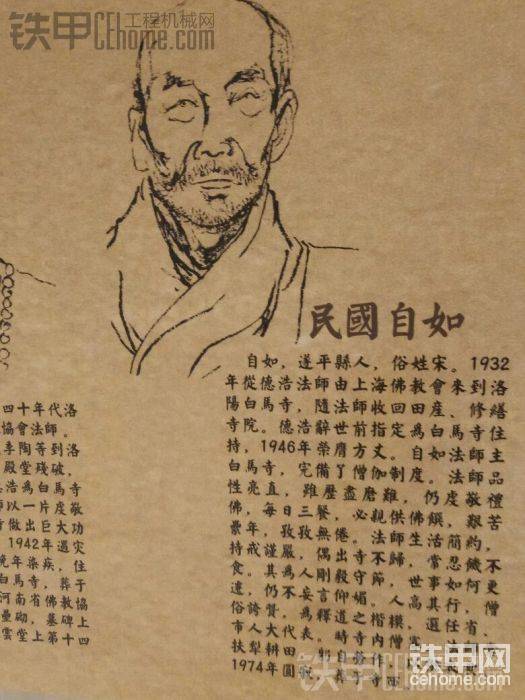 铁甲 工程机械网
CEhome.com
民國自如
自如，遂平縣人，俗姓宋。1932
年從德浩法師由上海佛教會來到洛
陽白馬寺，隨法師收回田産、修繕
寺院。德浩辭世前指定爲白馬寺住
持，1946年榮膺方丈。自如法師主
白馬寺，完備了僧伽制度。法師品
性亮直，雖歷盡磨難，仍虔敬禮
佛，每日三餐，必親供佛饌，艱苦
累年，孜孜無倦。法師生活簡約，
持戒謹嚴，偶出寺不歸，常忍饑不
食。其爲人剛毅守節，世事如何更
遷，仍不妄言仰媚。人高其行，僧
俗誇贊，爲釋道之楷模，選任省、
市人大代表。時寺内僧
扶犁耕田
1974年圓
四十年代洛
協會法師。
李陶等到洛
殿堂殘破，
浩爲白馬寺
師以一片虔敬
寺做出巨大功
1942年遇灾
晚年染疾，住
白馬寺，葬于
河南省佛教協
壘砌，墓碑上
雲堂上第十四
铁甲网
cehome.com